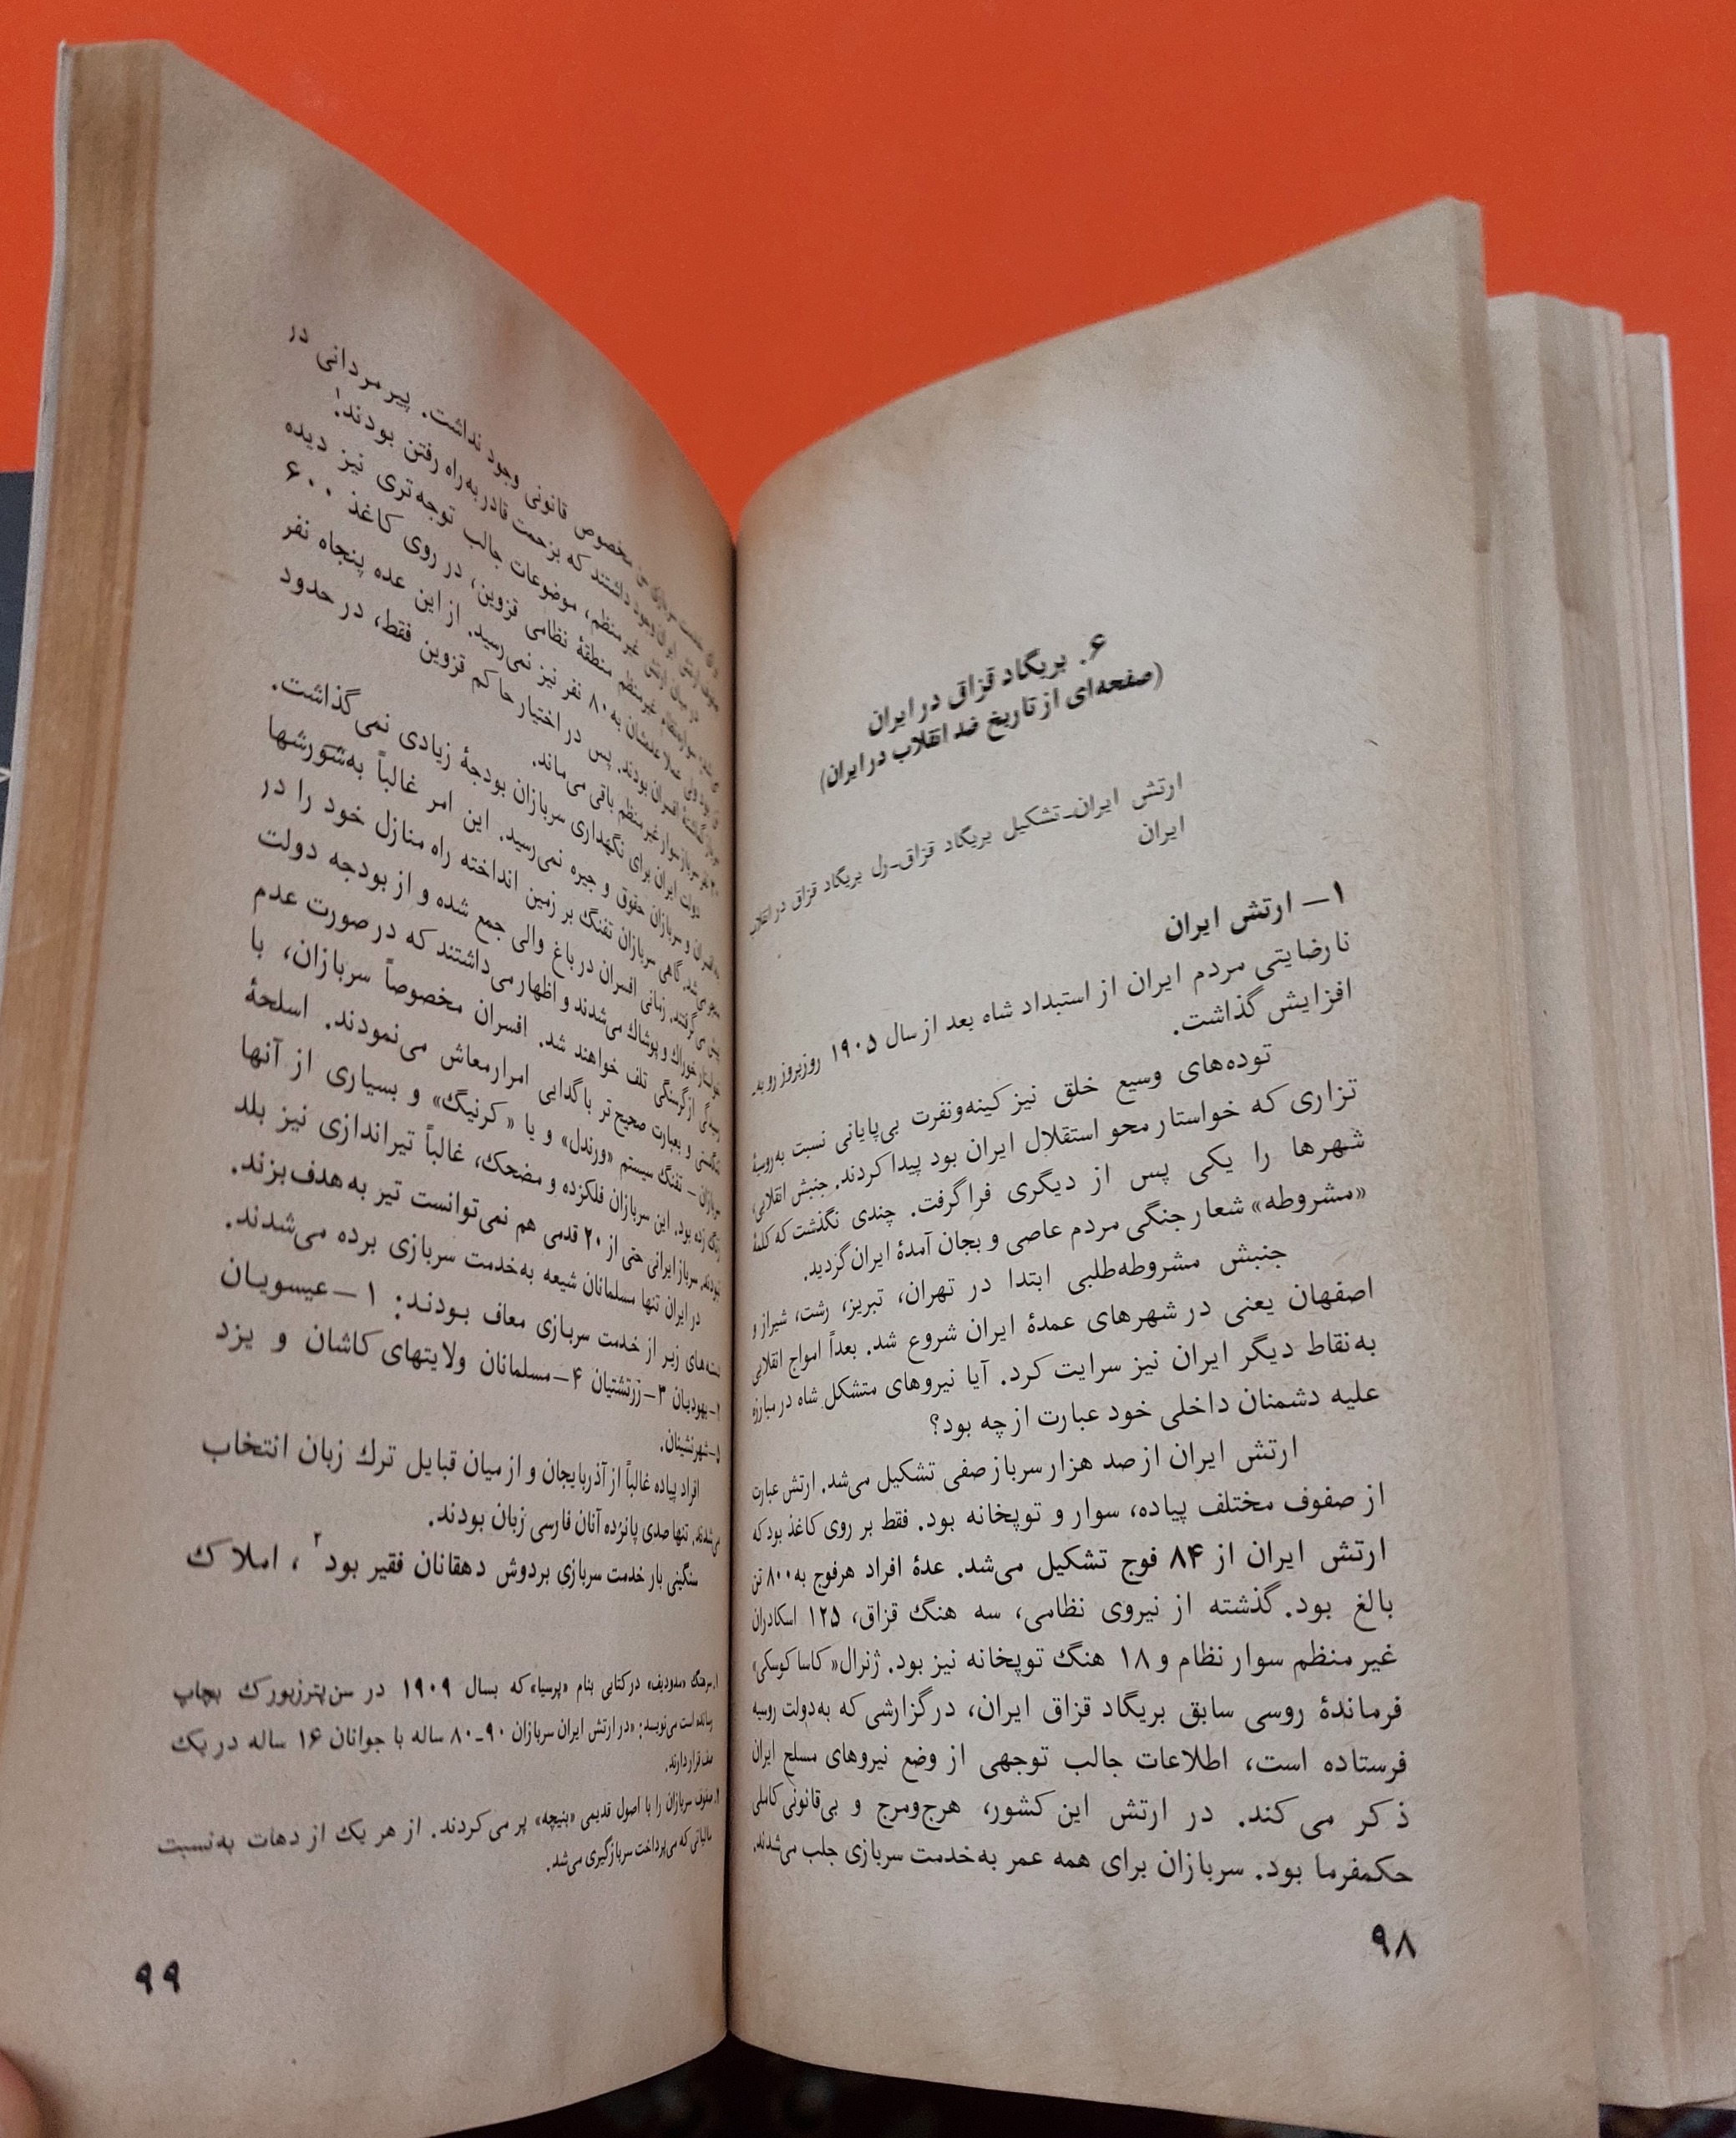 ۶. بریگاد قزاق در ایران
(صفحه‌ای از تاریخ ضد انقلاب در ایران)
ارتش ایران-تشکیل بریگاد قزاق-رل بریگاد قزاق در انقلاب
ایران
۱- ارتش ایران
نارضایتی مردم ایران از استبداد شاه بعد از سال ۱۹۰۵ روزبروز رو به-
افزایش گذاشت.
توده‌های وسیع خلق نیز کینه‌ونفرت بی‌پایانی نسبت به‌روسیهٔ
تزاری که خواستار محو استقلال ایران بود پیدا کردند. جنبش انقلابی،
شهرها را یکی پس از دیگری فراگرفت. چندی نگذشت که کلمهٔ
«مشروطه» شعار جنگی مردم عاصی و بجان آمدهٔ ایران گردید.
جنبش مشروطه‌طلبی ابتدا در تهران، تبریز، رشت، شیراز و
اصفهان یعنی در شهرهای عمدهٔ ایران شروع شد. بعداً امواج انقلابی
به‌نقاط دیگر ایران نیز سرایت کرد. آیا نیروهای متشکل شاه در مبارزه
علیه دشمنان داخلی خود عبارت از چه بود؟
ارتش ایران از صد هزار سرباز صفی تشکیل می‌شد. ارتش عبارت
از صفوف مختلف پیاده، سوار و توپخانه بود. فقط بر روی کاغذ بود که
ارتش ایران از ۸۴ فوج تشکیل می‌شد. عدهٔ افراد هرفوج به ۸۰۰ تن
بالغ بود. گذشته از نیروی نظامی، سه هنگ قزاق، ۱۲۵ اسکادران
غیر منظم سوار نظام و ۱۸ هنگ توپخانه نیز بود. ژنرال «کاساکوسکی»
فرماندهٔ روسی سابق بریگاد قزاق ایران، در گزارشی که به‌دولت روسیه
فرستاده است، اطلاعات جالب توجهی از وضع نیروهای مسلح ایران
ذکر می‌کند. در ارتش این کشور، هرج‌ومرج و بی‌قانونی کاملی
حکمفرما بود. سربازان برای همه عمر به‌خدمت سربازی جلب می‌شدند.
۹۸
مخصوص قانونی وجود نداشت. پیر مردانی در
ارتش ایران وجود داشتند که بزحمت قادر به‌راه رفتن بودند.۱
در میان ارتش غیر منظم، موضوعات جالب توجه‌تری نیز دیده
غیر منظم منطقهٔ نظامی قزوین، در روی کاغذ ۶۰۰
عدهٔشان به ۸۰ نفر نیز نمی‌رسید. از این عده پنجاه نفر
افسران بودند. پس در اختیار حاکم قزوین فقط، در حدود
نفر سرباز سوار غیر منظم باقی می‌ماند.
دولت ایران برای نگهداری سربازان بودجهٔ زیادی نمی‌گذاشت.
به‌افسران و سربازان حقوق و جیره نمی‌رسید. این امر غالباً به‌شورشها
منجر می‌شد. گاهی سربازان تفنگ بر زمین انداخته راه منازل خود را در
پیش می‌گرفتند. زمانی افسران در باغ والی جمع شده و از بودجه دولت
خواستار خوراک و پوشاک می‌شدند و اظهار می‌داشتند که در صورت عدم
رسیدگی از گرسنگی تلف خواهند شد. افسران مخصوصاً سربازان، با
و بعبارت صحیح‌تر با گدایی امرارمعاش می‌نمودند. اسلحهٔ
سربازان - تفنگ سیستم «ورندل» و یا «کرنیگ» و بسیاری از آنها
زنگ زده بود. این سربازان فلکزده و مضحک، غالباً تیراندازی نیز بلد
نبودند. سرباز ایرانی حتی از ۲۰ قدمی هم نمی‌توانست تیر به‌هدف‌بزند.
در ایران تنها مسلمانان شیعه به‌خدمت سربازی برده می‌شدند.
دسته‌های زیر از خدمت سربازی معاف بودند: ۱-عیسویان
۲-یهودیان ۳-زرتشتیان ۴-مسلمانان ولایتهای کاشان و یزد
۵-شهرنشینان.
افراد پیاده غالباً از آذربایجان و از میان قبایل ترک زبان انتخاب
می‌شدند. تنها صدی پانزده آنان فارسی زبان بودند.
سنگینی بار خدمت سربازی بردوش دهقانان فقیر بود۲، املاک
۱. سرهنگ «مدودیف» در کتابی بنام «پرسیا» که بسال ۱۹۰۹ در سن‌پترزبورک بچاپ
رسانده است می‌نویسد: «در ارتش ایران سربازان ۹۰-۸۰ ساله با جوانان ۱۶ ساله در یک
صف قرار دارند.
۲. صفوف سربازان را با اصول قدیمی «بنیچه» پر می‌کردند. از هر یک از دهات به‌نسبت
مالیاتی که می‌پرداخت سربازگیری می‌شد.
۹۹